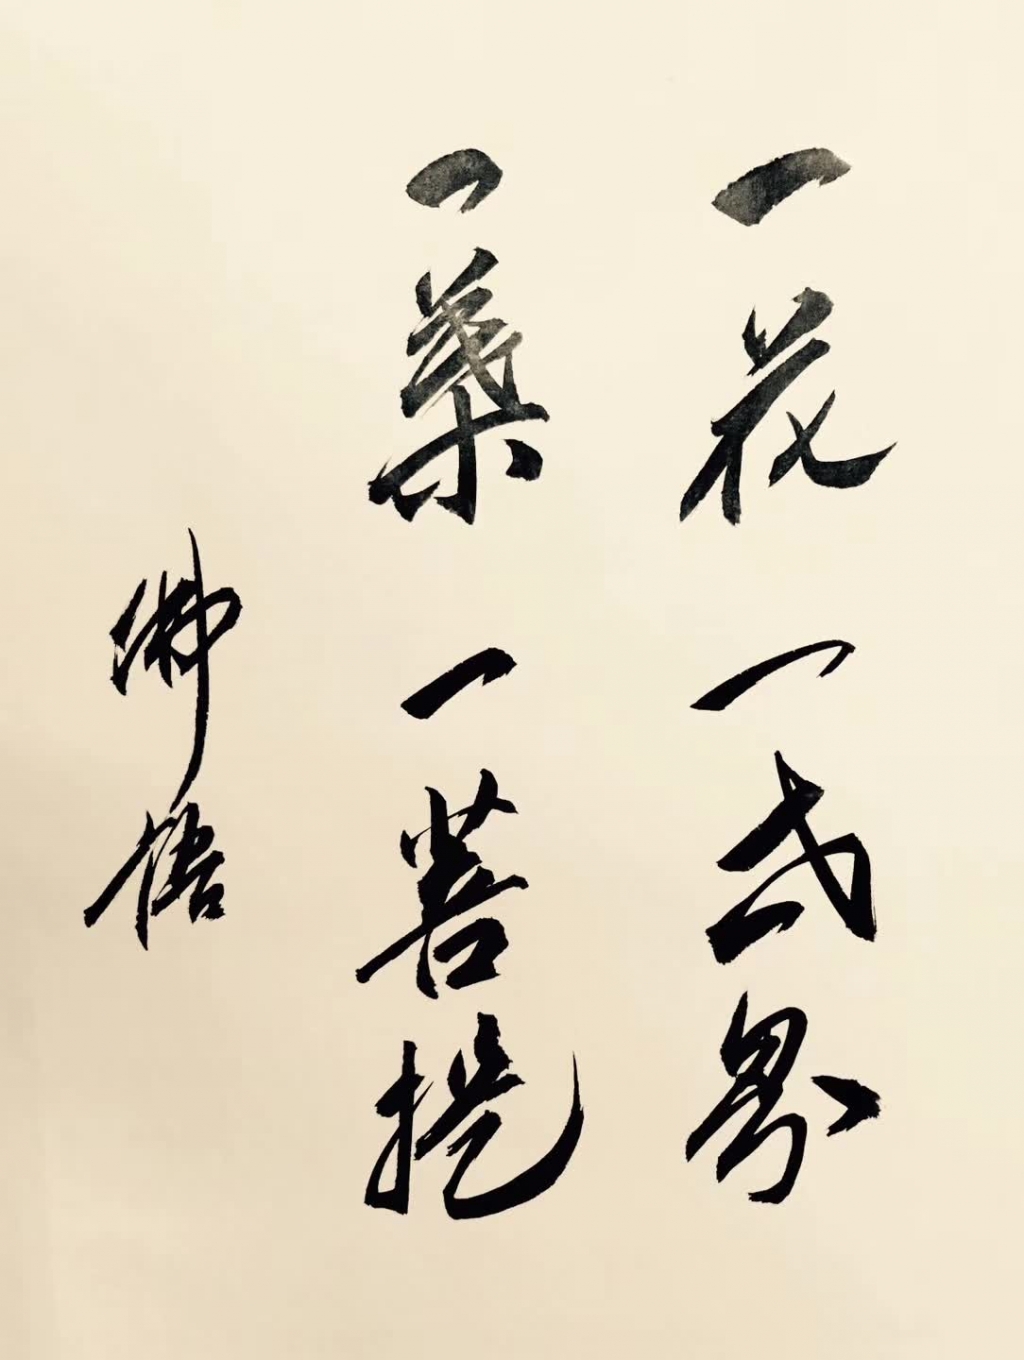 一花一世界
一葉一菩提
佛悟